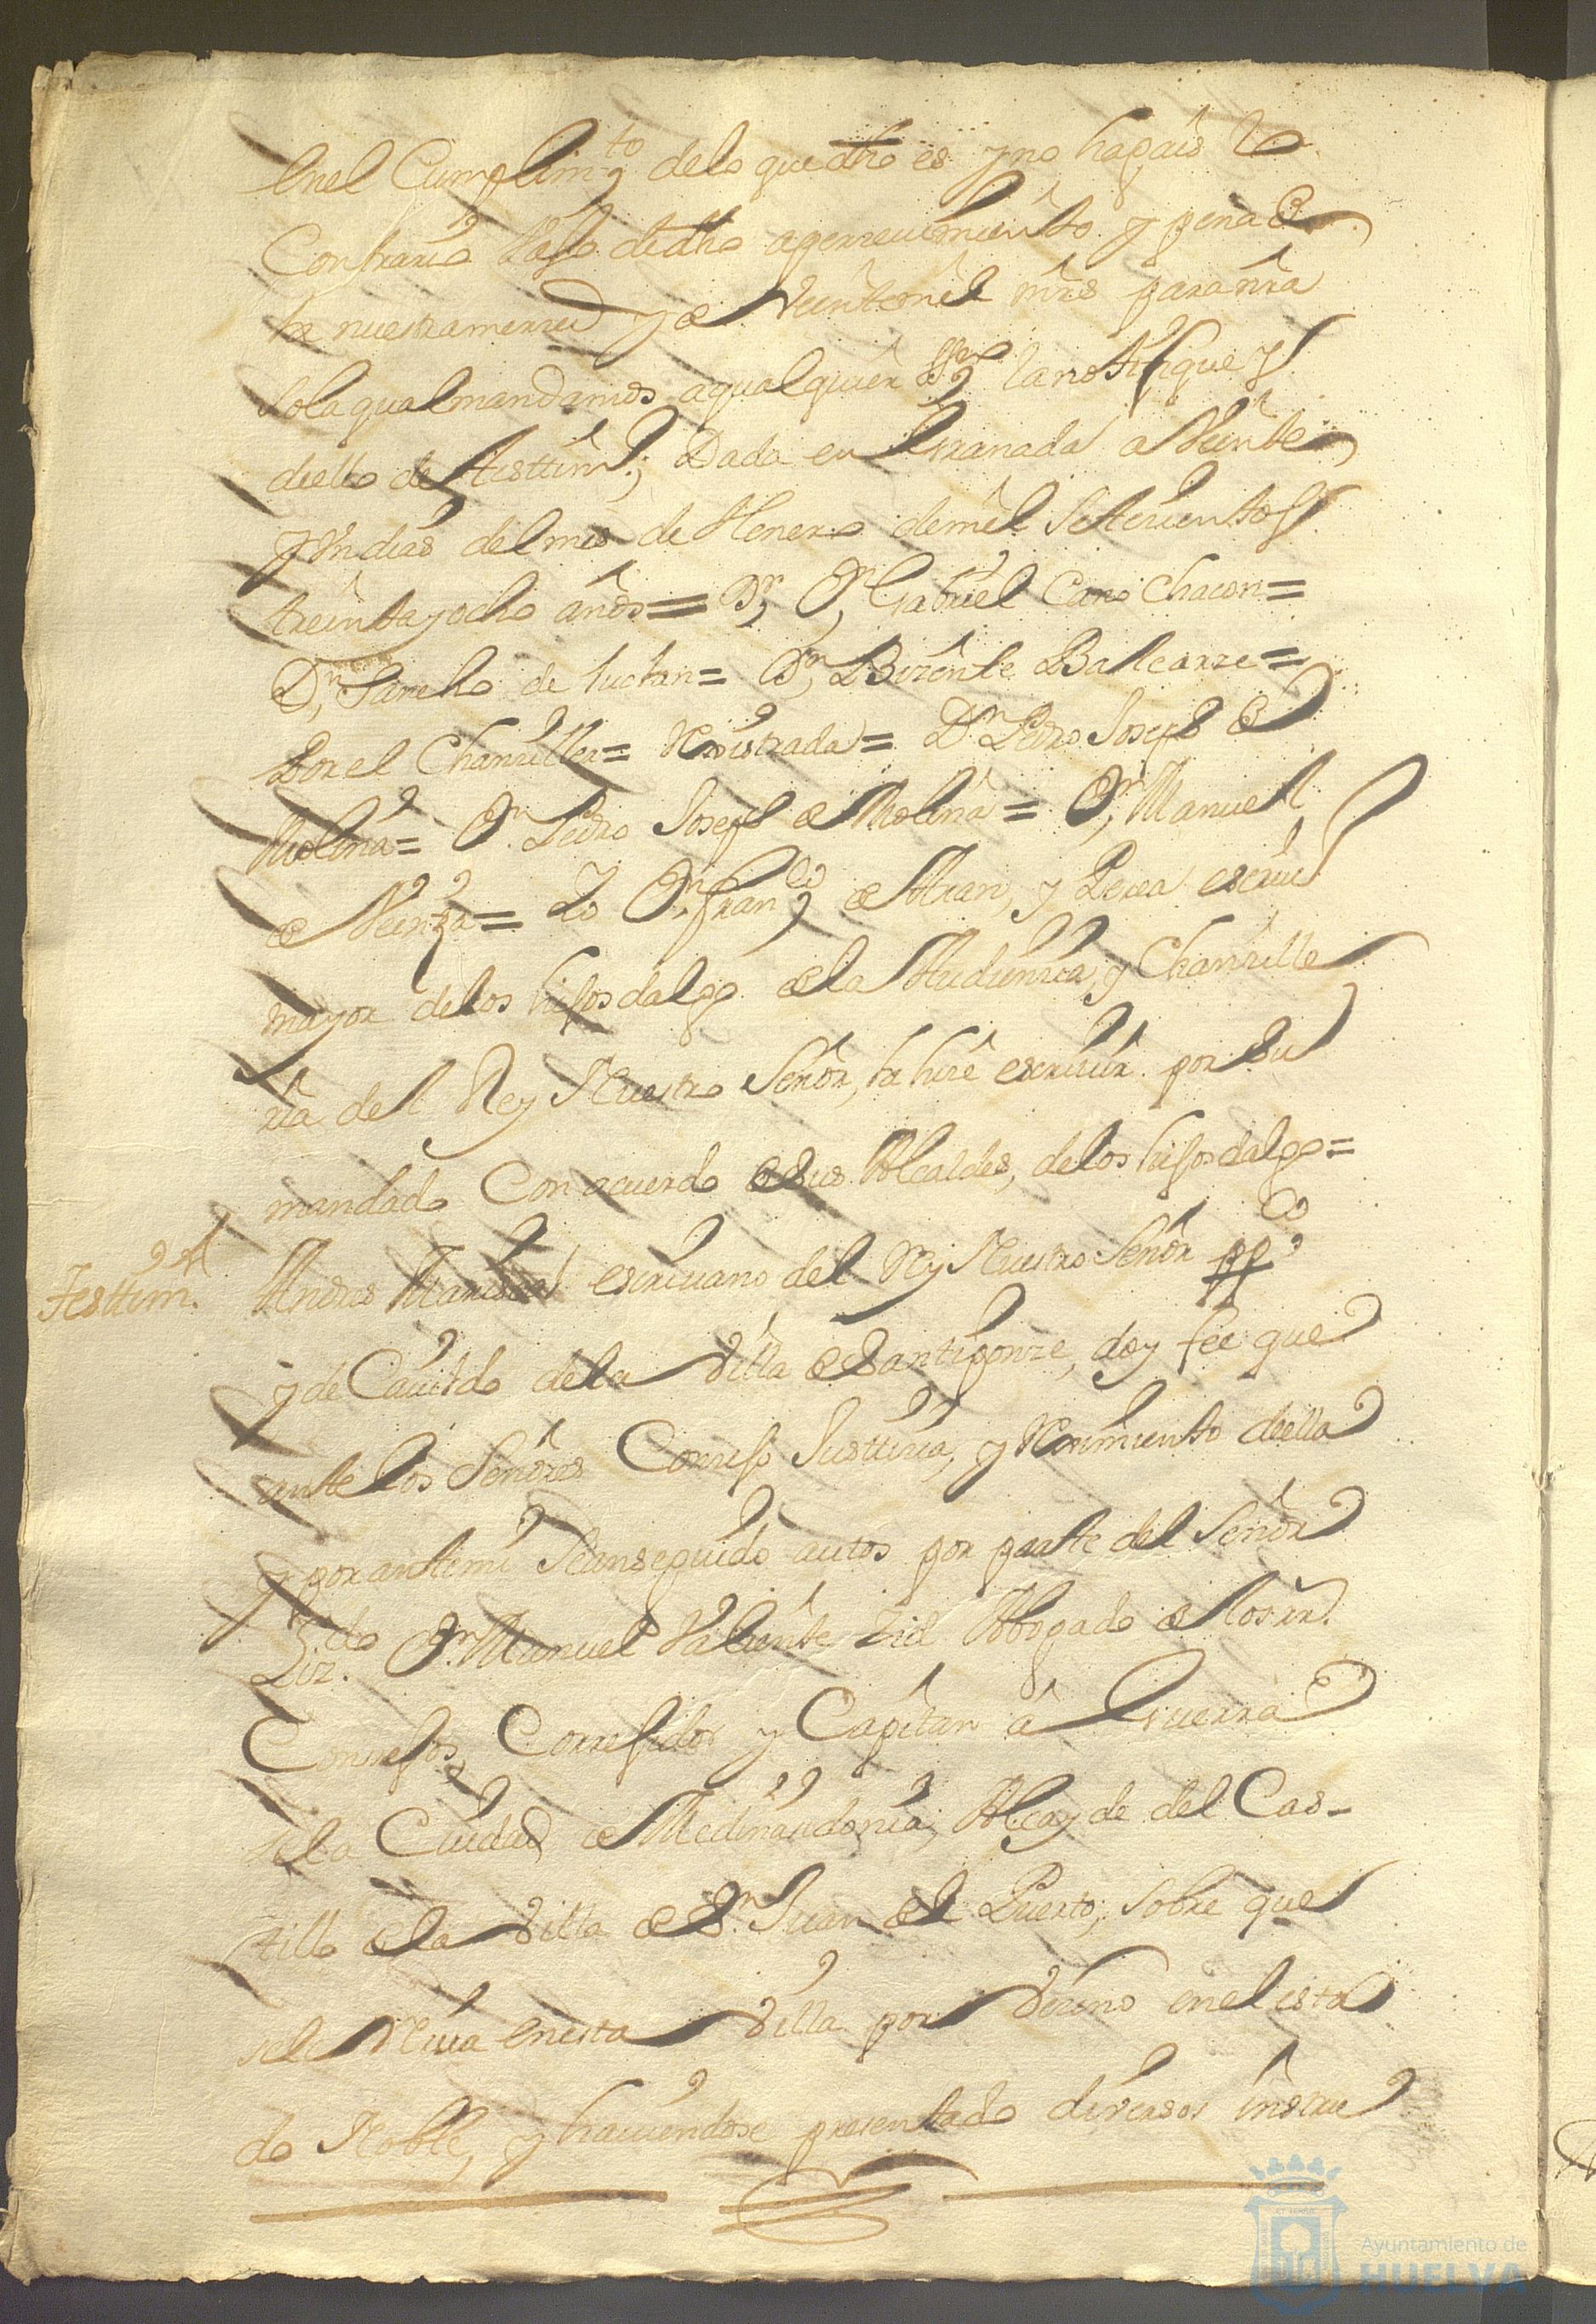 enel Cumplim.to delo que dho es y no hagais lo
Contrario vajo dedho aperreuimiento y pena de
la nuestramerred y de Veintemil mrs para nra
sola qual mandamos aqualquier ss.no lanotifique y
deello de testtim.o; Dada en Granada a Veinte
y un dias del mes de Henero demil Setecientos
treinta y ocho años = D.n D.n Gabriel Cano Chacon =
D.n Sancho de Inclan = D.n Bizente Balcarze =
Por el Chanziller = Rexistrada = D.n Pedro Joseph de
Molina = D.n Pedro Joseph de Molina = D.n Manuel
de = Yo D.n fran.co de Aran, y Perea escriu
mayor delos hijosdalgo dela Audienzia, y Chanzille
ria del Rey Nuestro Señor, la hize escriuir por su
mandado Con acuerdo desus Alcaldes, delos hijosdalgo =
Testtim.o Andres Mariscal escriuano del Rey Nuestro Señor pp.co
y de Cauildo dela Villa de Santiponze, doy fee que
ante los Señores Consejo Justtizia, y Reximiento deella
y por antemi seanseguido autos por parte del Señor
Liz.do D.n Manuel Valiente Zid Abogado de los rr.s
Consejos, Correjidor y Capitan â Guerra
dela Ciudad de Medinasidonia, Alcayde del Cas-
tillo dela Villa de S.n Juan del Puerto, sobre que
sele Reciua enesta Villa por Vezino enel esta
do Noble, y hauiendose presentado diversos instru
Ayuntamiento de
HUELVA